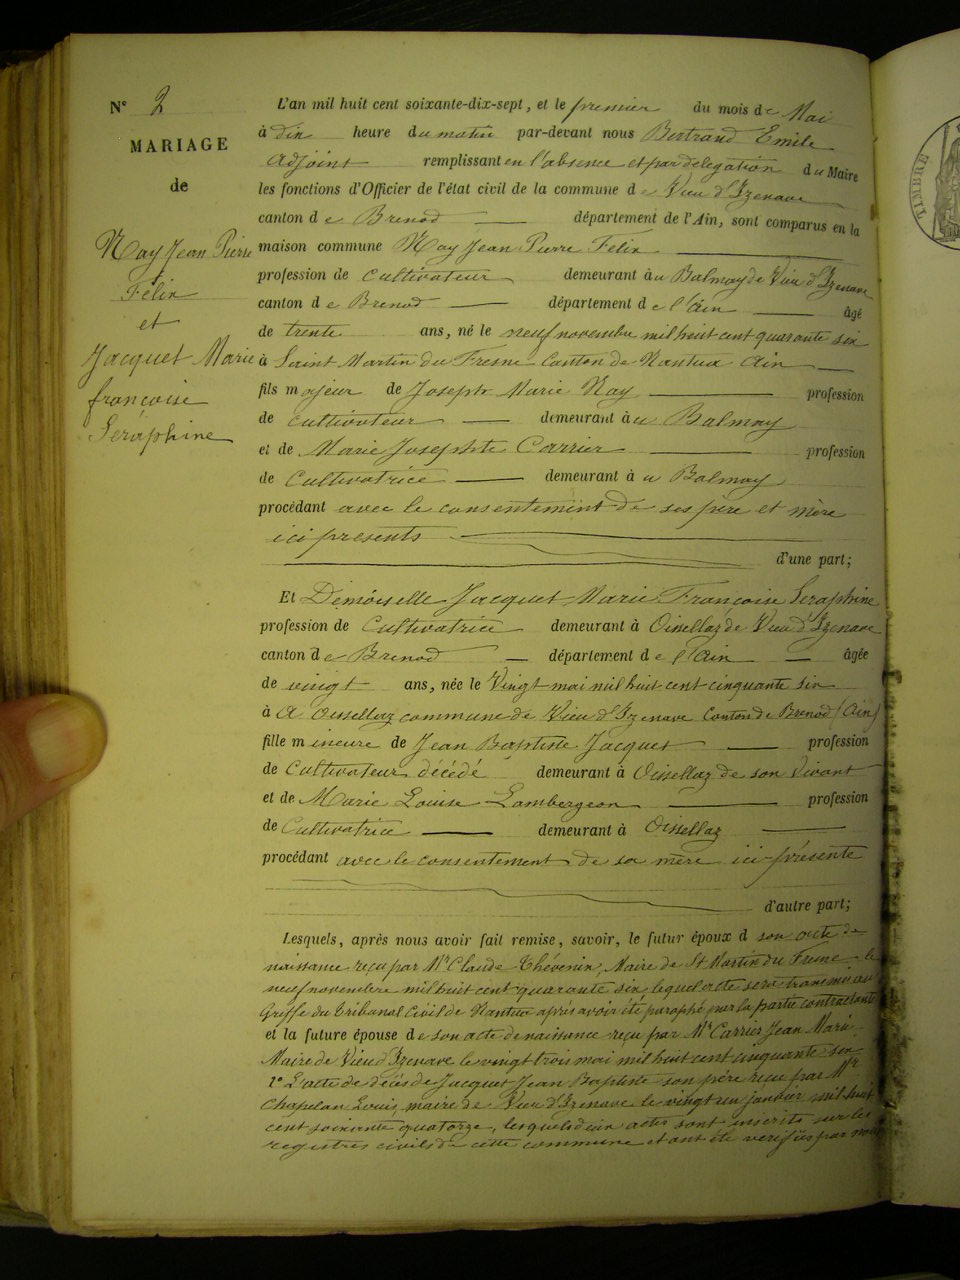 N° 2
MARIAGE
de
Nay Jean Pierre
Félix
et
Jacquet Marie
françoise
Séraphine
L'an mil huit cent soixante-dix-sept, et le premier du mois de Mai
à dix heure du matin par-devant nous Bertrand Emile
Adjoint remplissant en l'absence et par délégation du Maire
les fonctions d'Officier de l'état civil de la commune de Vieu d'Izenave
canton de Brenod département de l'Ain, sont comparus en la
maison commune Nay Jean Pierre Félix
profession de cultivateur demeurant à u Balmay de Vieu d'Izenave
canton de Brenod département de l'Ain âgé
de trente ans, né le neuf novembre mil huit cent quarante six
à Saint Martin du Fresne Canton de Nantua Ain
fils majeur de Joseph Marie Nay profession
de cultivateur demeurant à u Balmay
et de Marie Josephte Carrier profession
de Cultivatrice demeurant à u Balmay
procédant avec le consentement de ses père et mère
ici présents
d'une part;
Et Demoiselle Jacquet Marie Françoise Séraphine
profession de Cultivatrice demeurant à Oisellaz de Vieu d'Izenave
canton de Brenod département de l'Ain âgée
de vingt ans, née le Vingt mai mil huit cent cinquante six
à A Oisellaz commune de Vieu d'Izenave Canton de Brenod (Ain)
fille mineure de Jean Baptiste Jacquet profession
de Cultivateur décédé demeurant à Oisellaz de son vivant
et de Marie Louise Lambergeon profession
de Cultivatrice demeurant à Oisellaz
procédant avec le consentement de sa mère ici présente
d'autre part;
Lesquels, après nous avoir fait remise, savoir, le futur époux d son acte de
naissance reçu par Mr Claude Thévenin, Maire de St Martin du Fresne le
neuf novembre mil huit cent quarante six lequel acte sera transmis au
Griffe du tribunal Civil de Nantua après avoir été paraphé par la partie contractante
et la future épouse de son acte de naissance reçu par Mr Carrier Jean Marie
Maire de Vieu d'Izenave le vingt trois mai mil huit cent cinquante six
2° L'acte de décès de Jacquet Jean Baptiste son père reçu par Mr
Chapelan Louis, maire de Vieu d'Izenave le vingt un janvier mil huit
cent soixante quatorze, lesquels deux actes sont inscrits sur les
registres civils de cette commune et ont été vérifiés par nous
TIMBRE